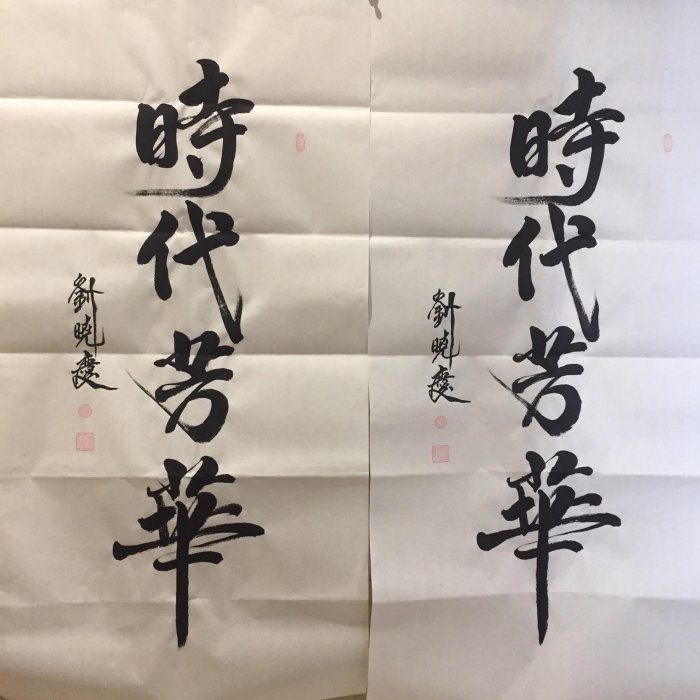 時代芳華
劉曉慶
時代芳華
劉曉慶